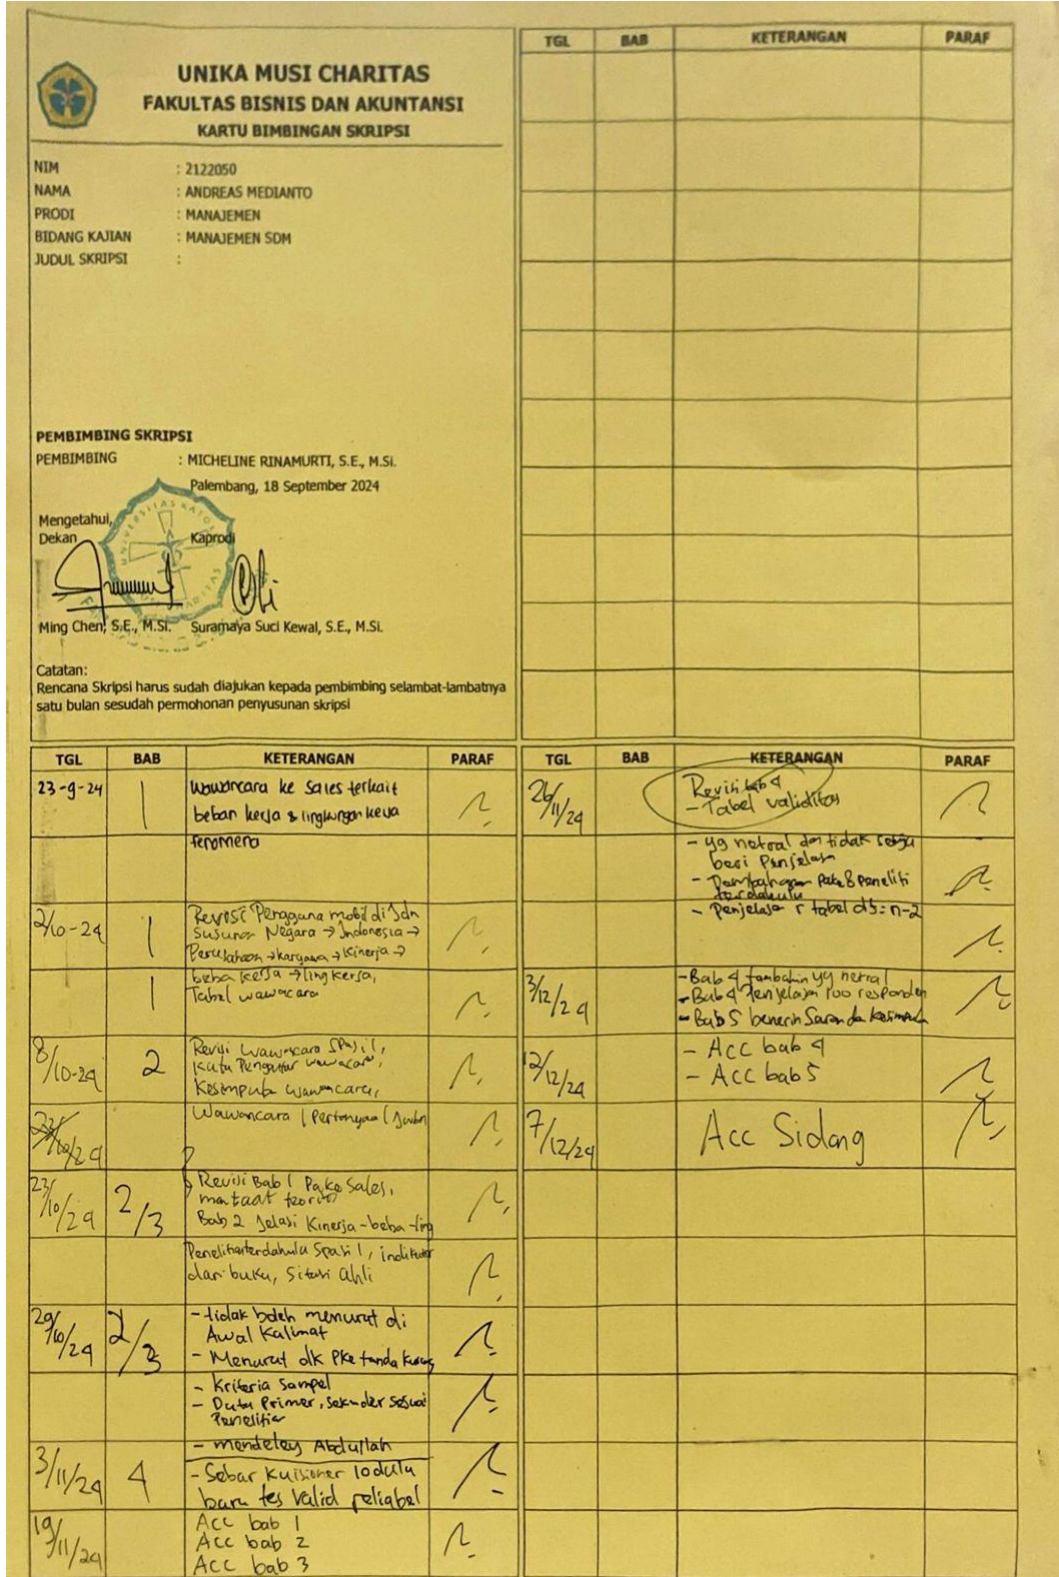 UNIKA MUSI CHARITAS
FAKULTAS BISNIS DAN AKUNTANSI
KARTU BIMBINGAN SKRIPSI
NIM : 2122050
NAMA : ANDREAS MEDIANTO
PRODI : MANAJEMEN
BIDANG KAJIAN : MANAJEMEN SDM
JUDUL SKRIPSI :
PEMBIMBING SKRIPSI
PEMBIMBING : MICHELINE RINAMURTI, S.E., M.Si.
Palembang, 18 September 2024
Mengetahui,
Dekan Kaprodi
Ming Chen, S.E., M.Si. Suramaya Suci Kewal, S.E., M.Si.
Catatan:
Rencana Skripsi harus sudah diajukan kepada pembimbing selambat-lambatnya
satu bulan sesudah permohonan penyusunan skripsi
TGL BAB KETERANGAN PARAF
TGL BAB KETERANGAN PARAF
23-9-24 1 Wawancara ke sales terkait
beban kerja & lingkungan kerja
fenomena
2/10-24 1 Revisi Pengguna mobil di
Susunan Negara → Indonesia →
Perusahaan → karyawan → kinerja →
1 beban kerja → ling kerja,
Tabel wawacara
8/10-24 2 Revisi wawancara Spasi 1,
Kata Pengantar wawancar,
Kesimpulan wawancara,
Wawancara 1 Pertanyaan 1
23/10/24 2/3 Revisi Bab 1 Pake Sales,
manfaat teoritis
Bab 2 Jelasi Kinerja - beba - ling
Penelitian terdahulu Spasi 1, indikator
dari buku, Sitasi ahli
29/10/24 2/3 - tidak boleh menurut di
Awal Kalimat
- Menurut dlk Pke tanda kurung
- Kriteria Sampel
- Data Primer, sekunder sesuai
Penelitian
- mendeley Abdullah
3/11/24 4 - Sebar Kuisioner 10 dulu
baru tes Valid reliabel
19/11/24 Acc bab 1
Acc bab 2
Acc bab 3
TGL BAB KETERANGAN PARAF
26/11/24 Revisi bab 4
- Tabel validitas
- yg netral dan tidak setuju
beri Penjelasan
- Pembahasan Pake 8 Peneliti
terdahulu
- Penjelasa r tabel df = n-2
3/12/24 - Bab 4 tambahin yg netral
- Bab 4 Penjelasan 100 responden
- Bab 5 benerin Saran dan kesimpula
12/12/24 - Acc bab 4
- Acc bab 5
7/12/24 Acc Sidang